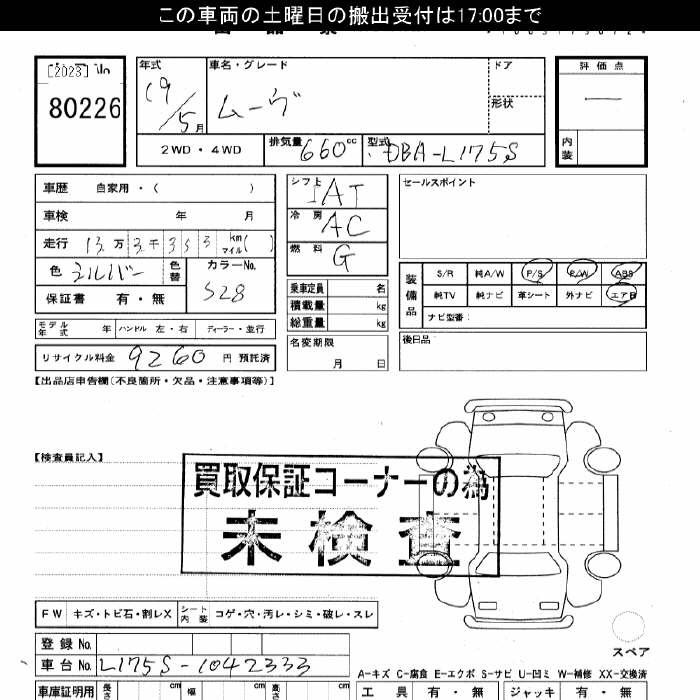 この車両の土曜日の搬出受付は17:00まで
[2023]
80226
年式 車名・グレード ドア 評価点
19/5月 ムーヴ 形状 —
2WD・4WD 排気量 660cc 型式 DBA-L175S 内装
車歴 自家用・( ) シフト IAT セールスポイント
車検 年 月 冷房 AC
走行 13万3千353km マイル( ) 燃料 G
色 シルバー 色替 カラーNo. S28
保証書 有・無
乗車定員 名
積載量 kg
総重量 kg
装備品 S/R 純A/W P/S P/W ABS
純TV 純ナビ 革シート 外ナビ エアB
ナビ型番:
モデル年式 年 ハンドル 左・右 ディーラー・並行
名変期限 月 日
後日品
リサイクル料金 9260 円 預託済
【出品店申告欄(不良箇所・欠品・注意事項等)】
【検査員記入】
買取保証コーナーの為
未検査
FW キズ・トビ石・割レX シート内装 コゲ・穴・汚レ・シミ・破レ・スレ
スペア
登録No.
車台No. L175S-1042333
A-キズ C-腐食 E-エクボ S-サビ U-凹ミ W-補修 XX-交換済
車庫証明用 長さ cm 幅 cm 高さ cm 工具 有・無 ジャッキ 有・無